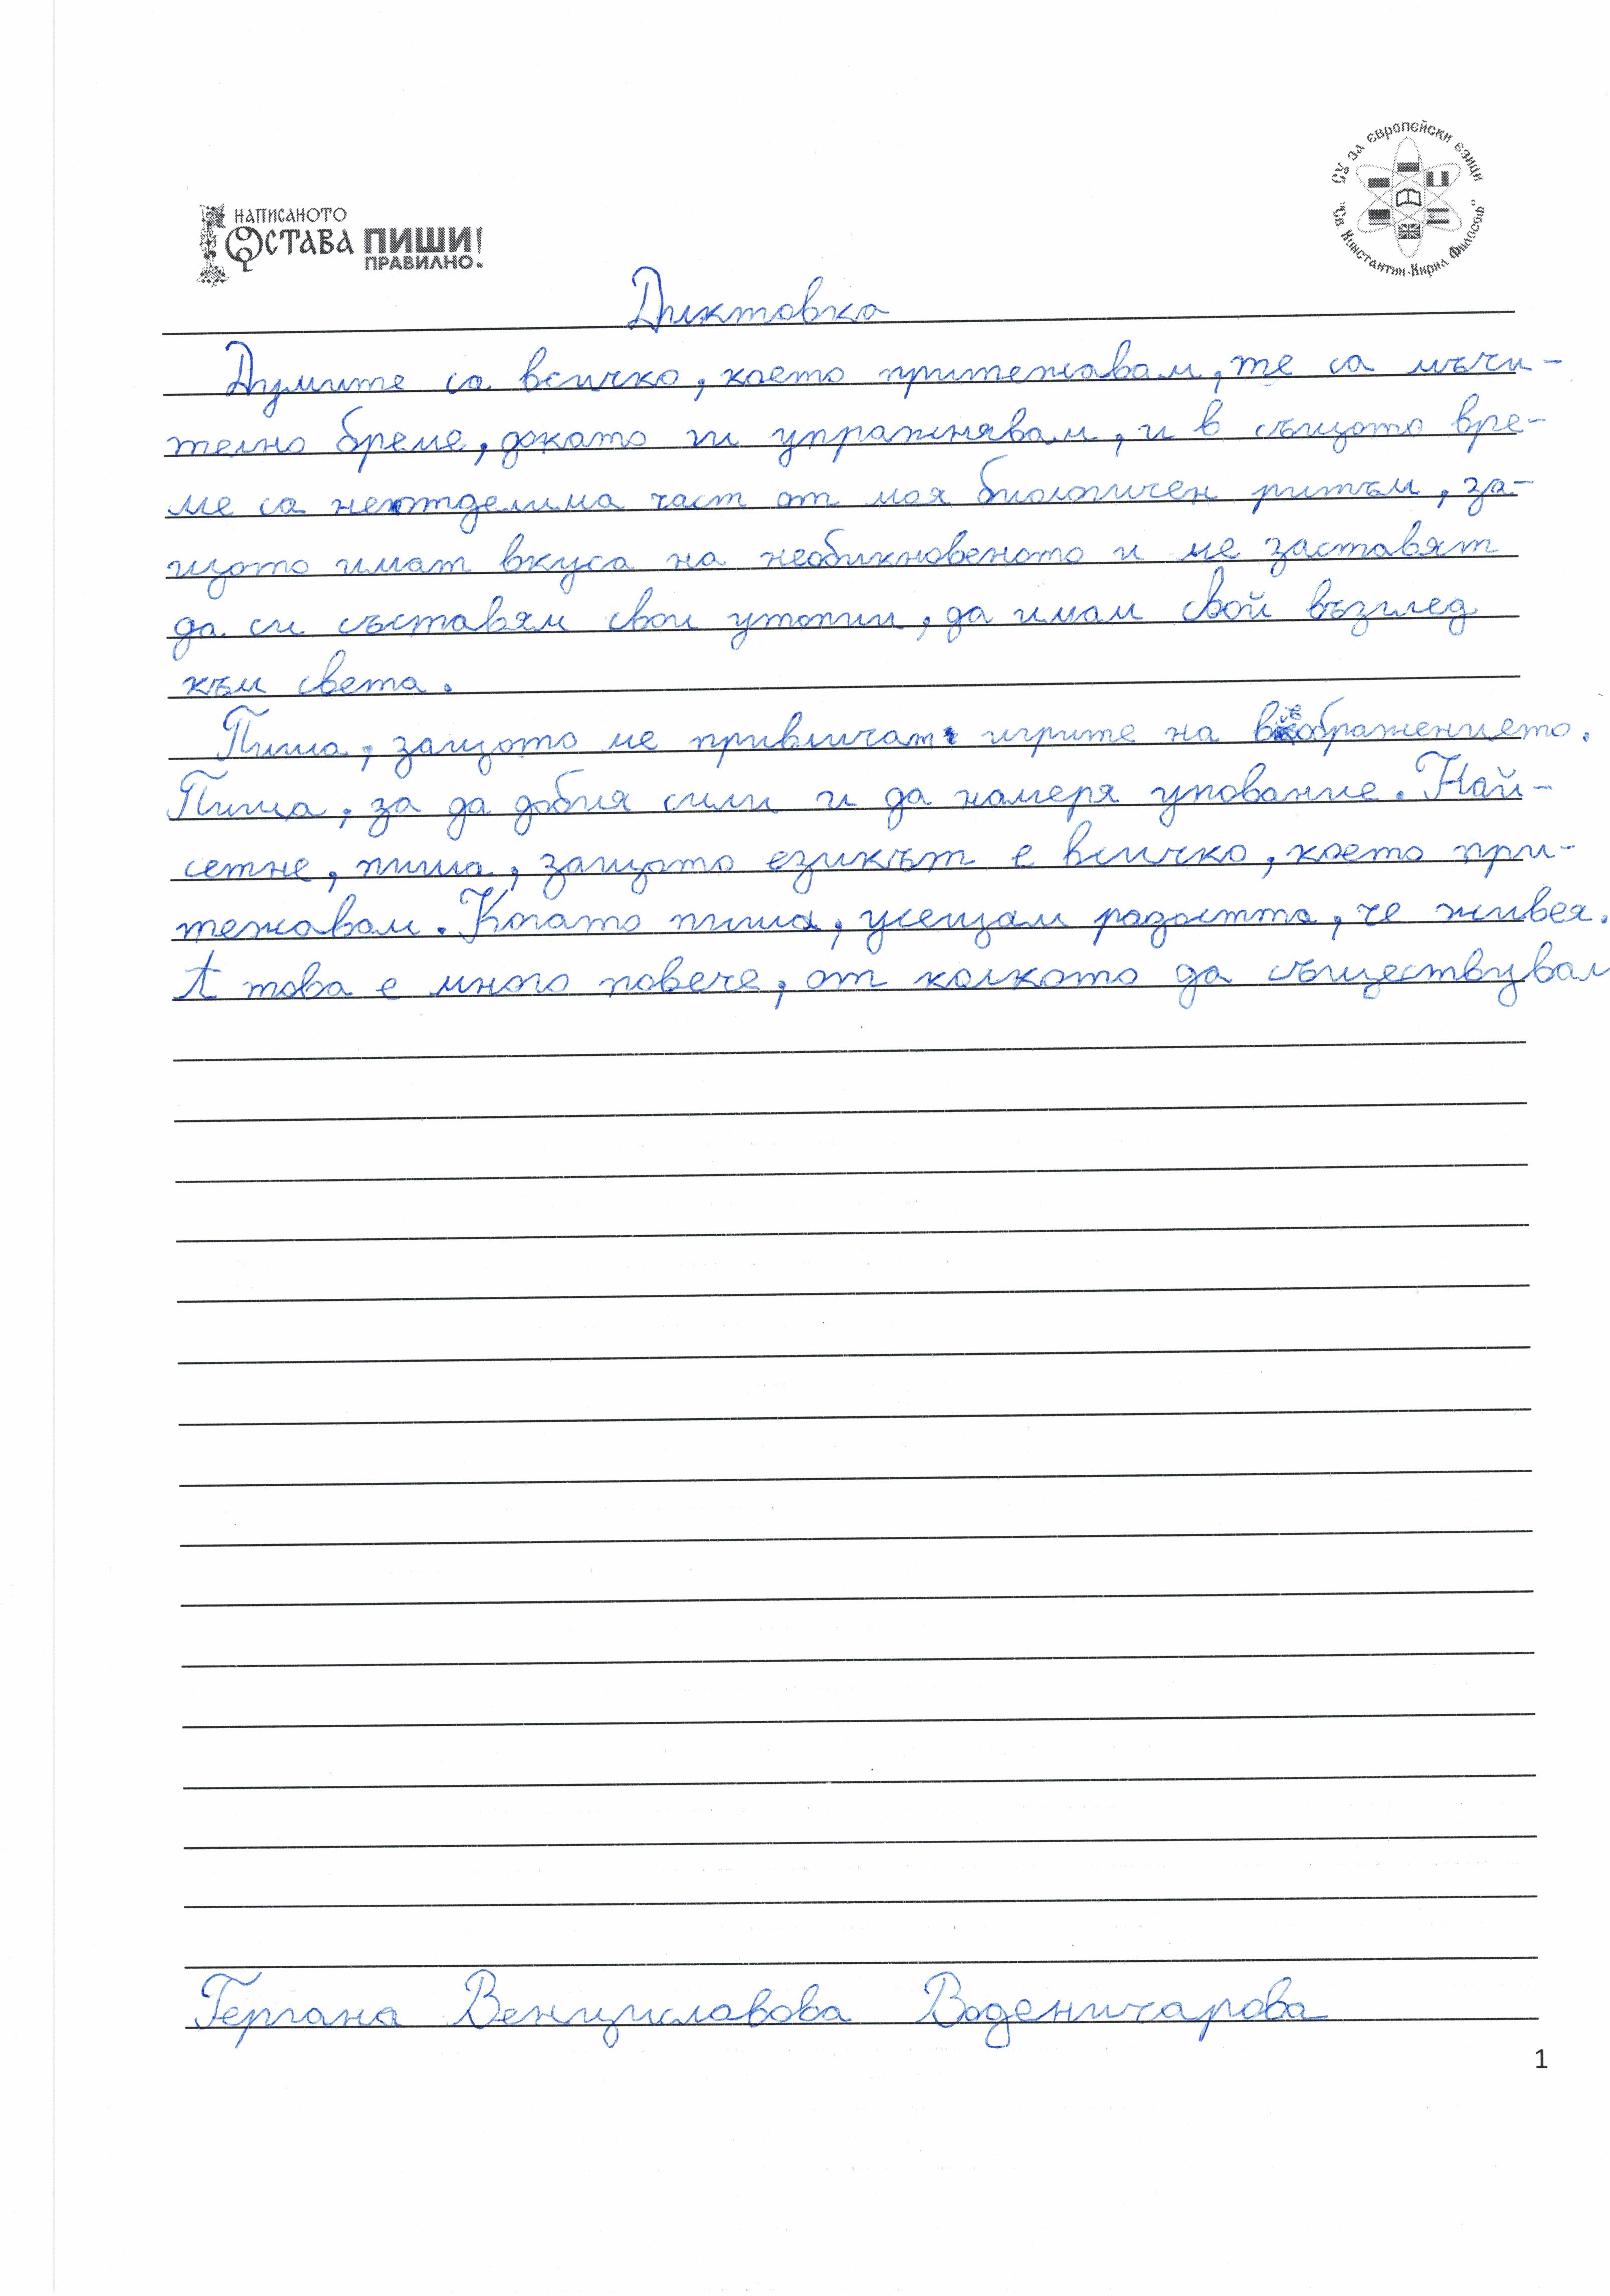 НАПИСАНОТО
ОСТАВА ПИШИ!
ПРАВИЛНО.
СУ за европейски езици
"Св Константин-Кирил Философ"
Диктовка
Думите са всичко, което притежавам, те са мъчи-
телно бреме, докато ги упражнявам, и в същото вре-
ме са неотделима част от моя биологичен ритъм, за-
щото имат вкуса на необикновеното и ме заставят
да си съставям свои утопии, да имам свой възглед
към света.
Пиша, защото ме привличат игрите на въображението.
Пиша, за да добия сили и да намеря упование. Най-
сетне, пиша, защото езикът е всичко, което при-
тежавам. Когато пиша, усещам радостта, че живея.
А това е много повече, от колкото да съществувам
Гергана Венциславова Воденичарова
1